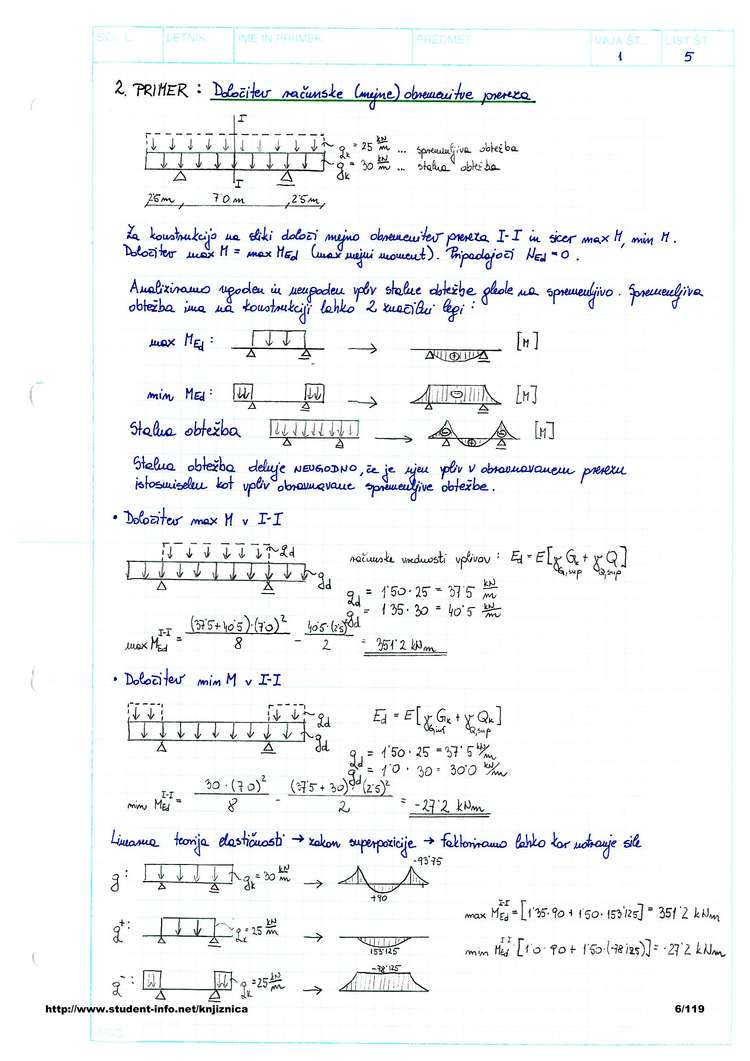 ŠOL. L. LETNIK IME IN PRIIMEK PREDMET VAJA ŠT. LIST ŠT.
1 5
2. PRIMER : Določitev računske (mejne) obremenitve prereza
I
q_k = 25 kN/m ... spremenljiva obtežba
g_k = 30 kN/m ... stalna obtežba
I
2'5 m, 7'0 m, 2'5 m
Za konstrukcijo na sliki določi mejno obremenitev prereza I-I in sicer max M, min M.
Določitev max M = max M_Ed (max mejni moment). Pripadajoči N_Ed = 0.
Analiziramo ugoden in neugoden vpliv stalne obtežbe glede na spremenljivo. Spremenljiva
obtežba ima na konstrukciji lahko 2 značilni legi :
max M_Ed : → ⊕ [M]
min M_Ed : → ⊖ [M]
Stalna obtežba → ⊖ ⊕ ⊖ [M]
Stalna obtežba deluje NEUGODNO, če je njen vpliv v obravnavanem prerezu
istosmiselen kot vpliv obravnavane spremenljive obtežbe.
• Določitev max M v I-I
q_d
g_d
računske vrednosti vplivov : E_d = E[γ_G,sup G_k + γ_Q,sup Q]
q_d = 1'50 · 25 = 37'5 kN/m
g_d = 1'35 · 30 = 40'5 kN/m
max M_Ed^I-I = (37'5 + 40'5)·(7'0)²/8 − 40'5·(2'5)²/2 = 351'2 kNm
• Določitev min M v I-I
q_d
g_d
E_d = E[γ_G,inf G_k + γ_Q,sup Q_k]
q_d = 1'50 · 25 = 37'5 kN/m
g_d = 1'0 · 30 = 30'0 kN/m
min M_Ed^I-I = 30·(7'0)²/8 − (37'5 + 30)·(2'5)²/2 = -27'2 kNm
Linearna teorija elastičnosti → zakon superpozicije → faktoriramo lahko kar notranje sile
g : g_k = 30 kN/m → -93'75 +90
q⁺ : q_k = 25 kN/m → 153'125
max M_Ed^I-I = [1'35·90 + 1'50·153'125] = 351'2 kNm
min M_Ed^I-I = [1'0·90 + 1'50·(-78'125)] = -27'2 kNm
q⁻ : q_k = 25 kN/m → -78'125
http://www.student-info.net/knjiznica 6/119